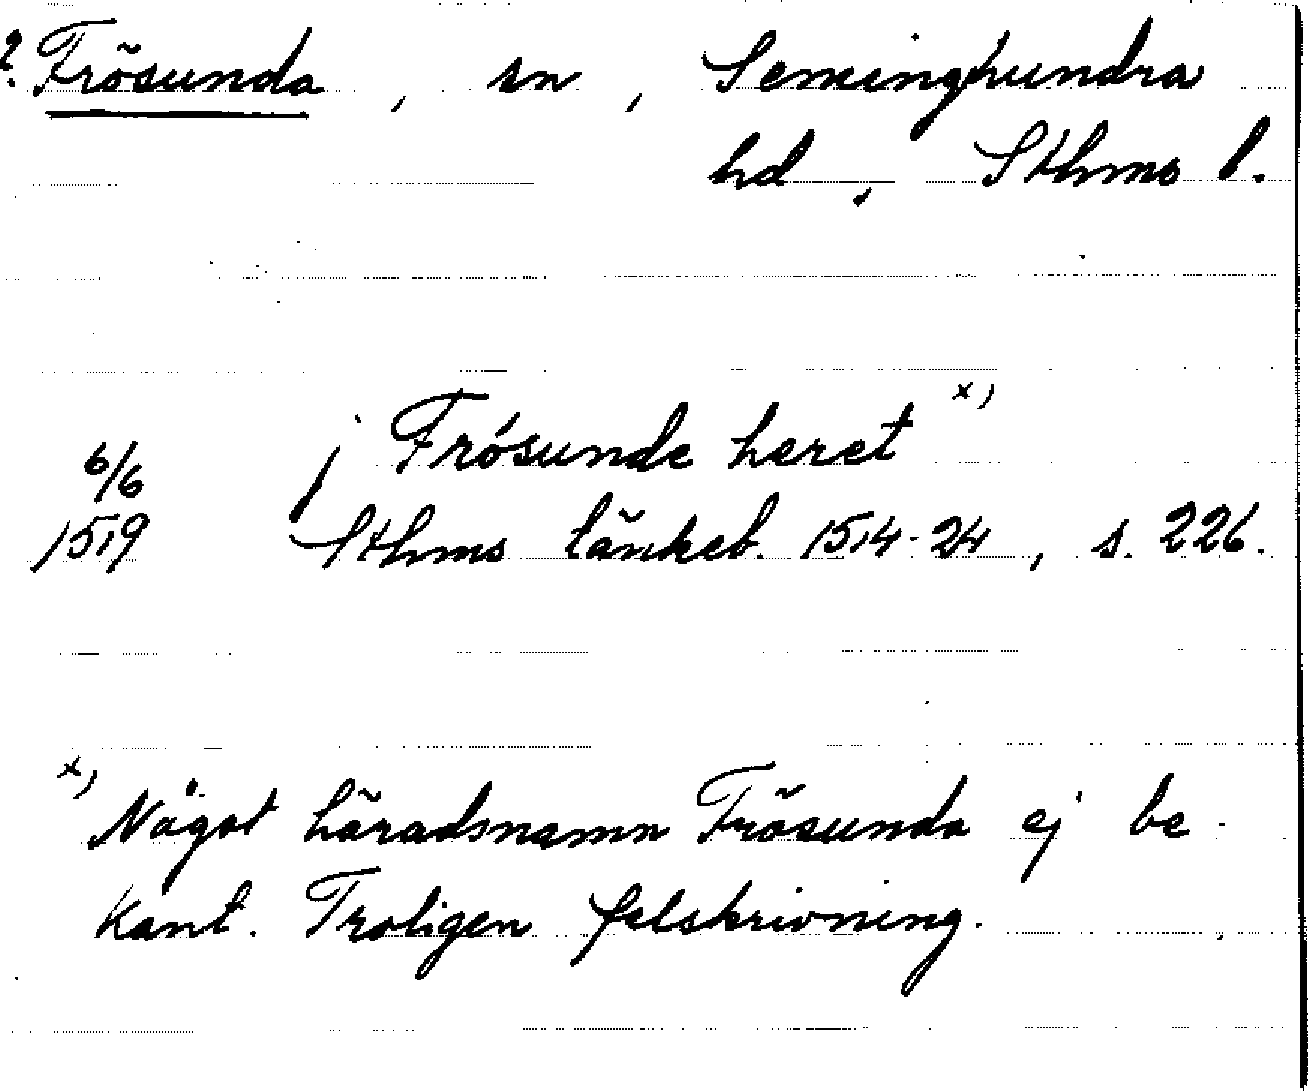 ? Frösunda, sn, Seminghundra
hd, Sthms l.
j Frósunde heret x)
6/6
1519 Sthms tänkeb. 1514-24, s. 226.
x) Något häradsnamn Frösunda ej be-
kant. Troligen felskrivning.